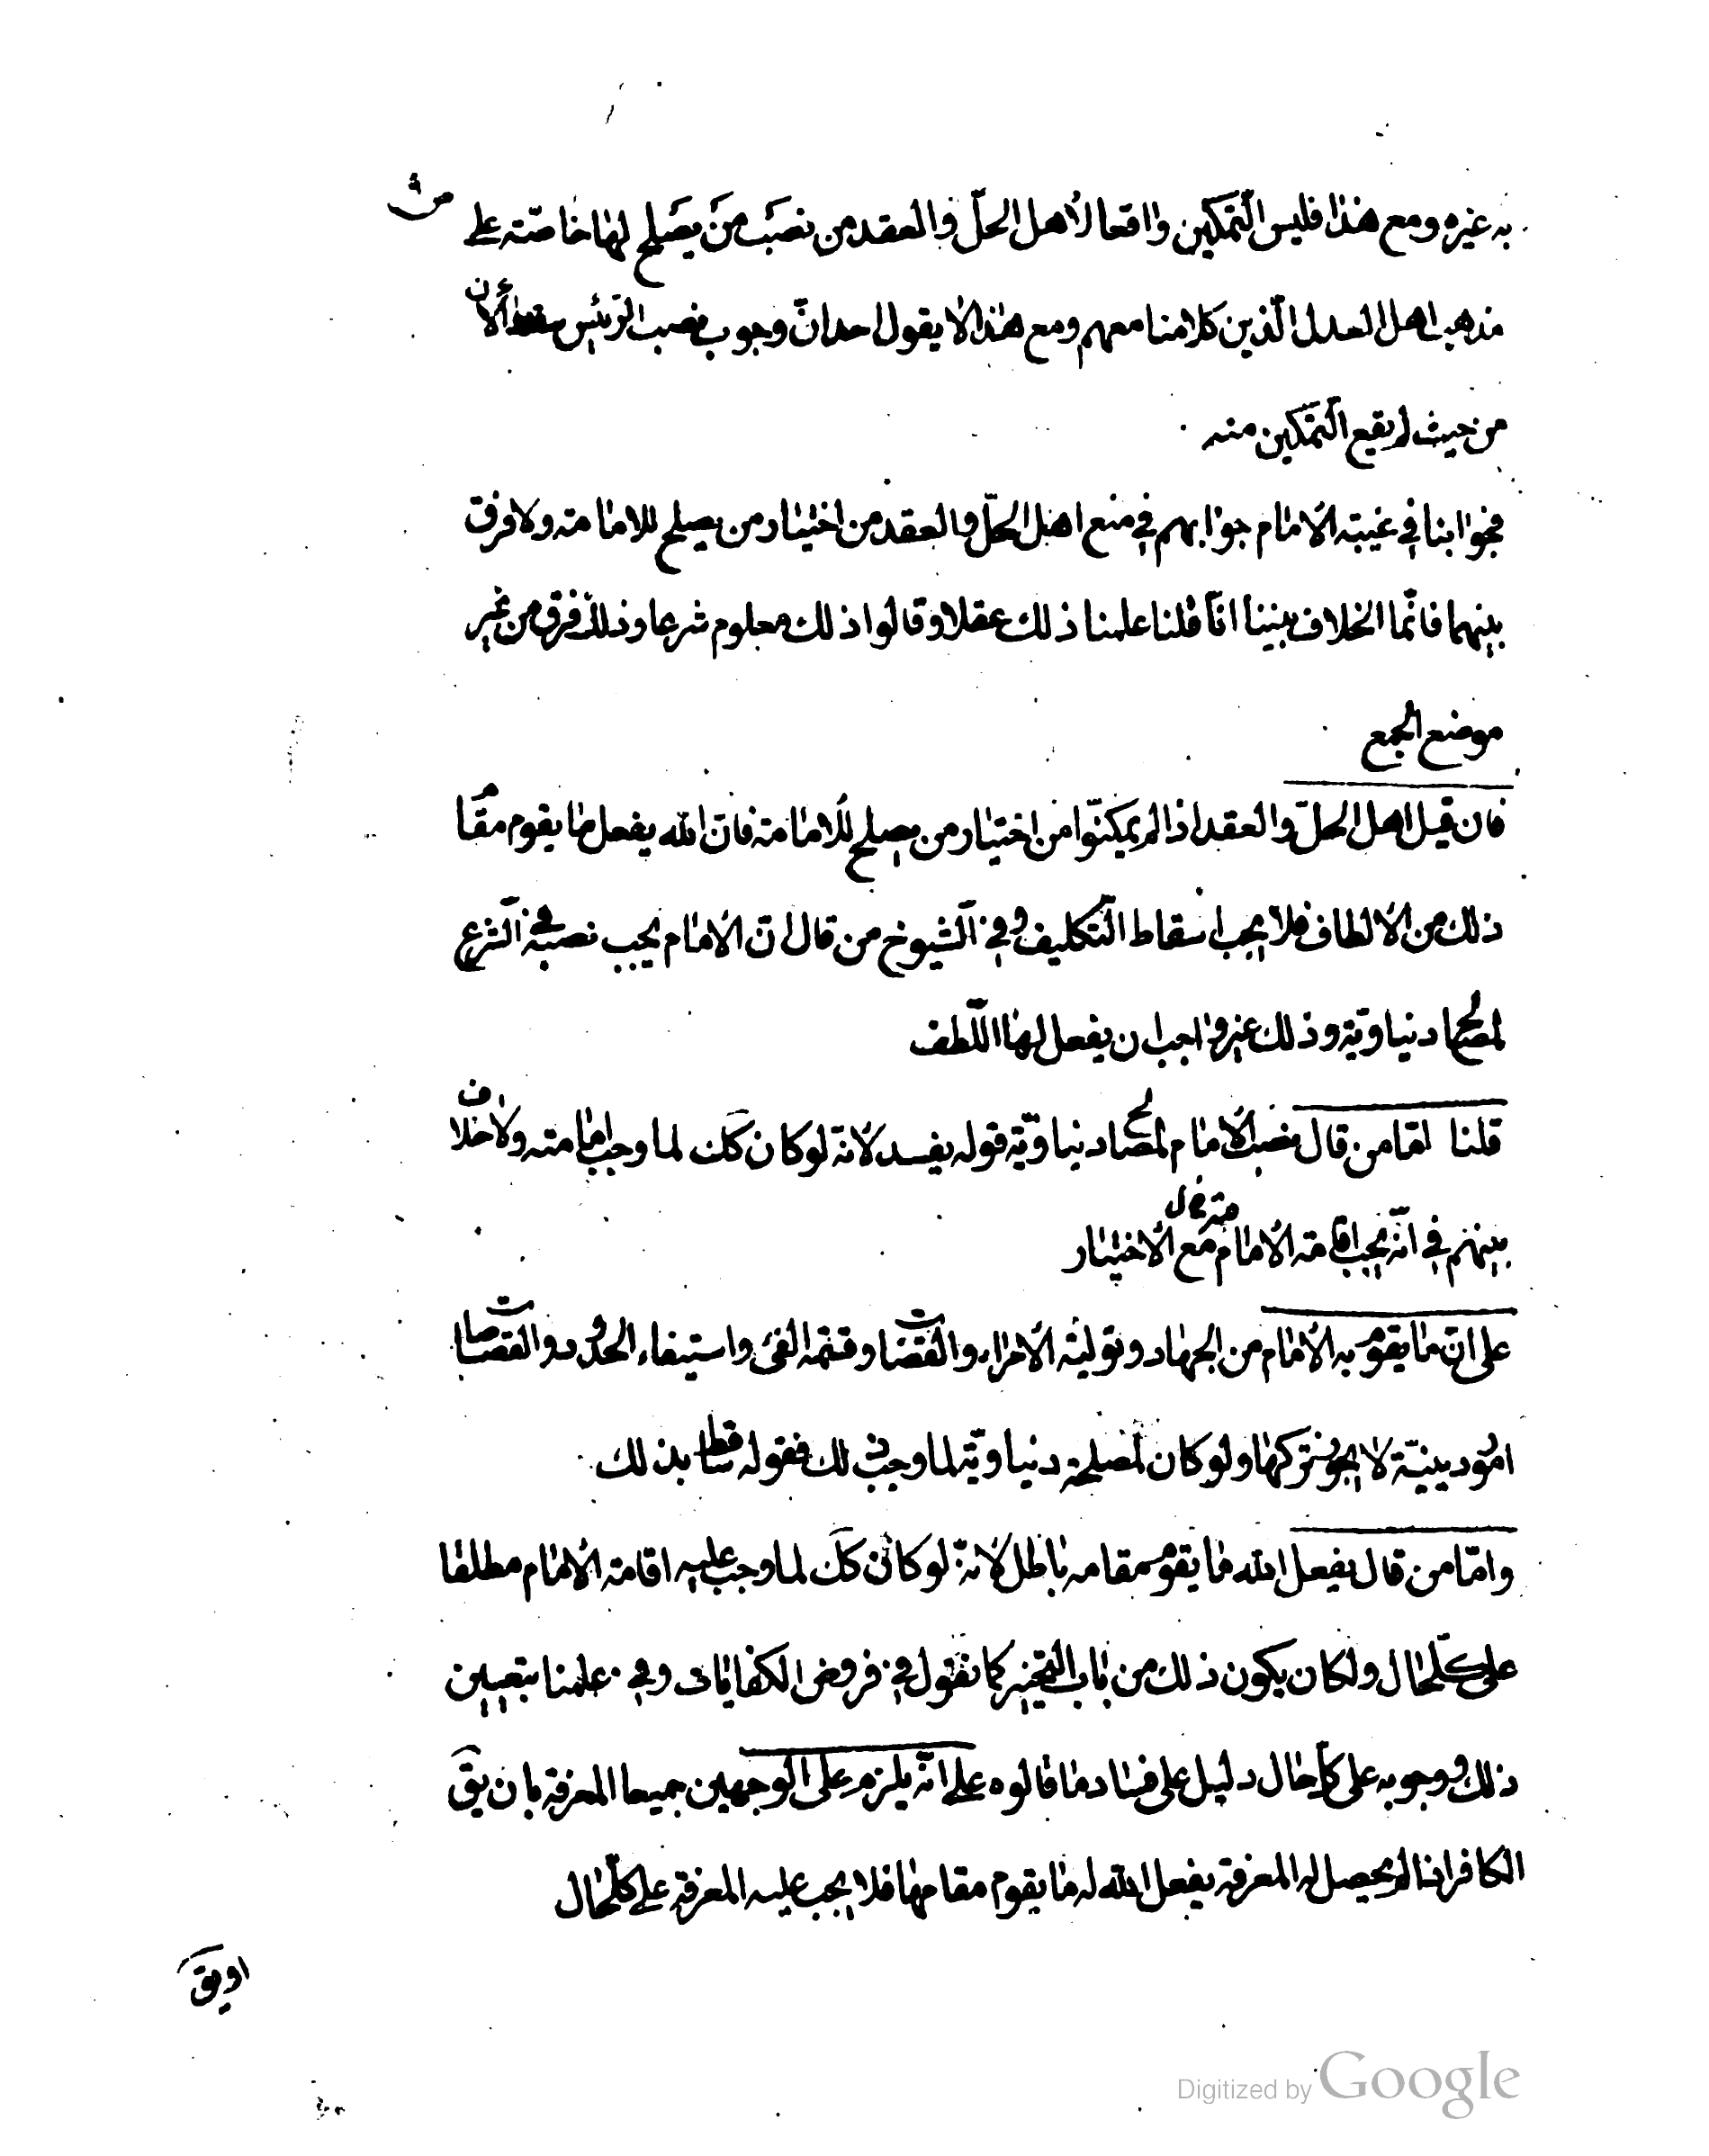 به غيره ومع هذا فليس التمكين واقعا لأهل الحلّ والعقد من نصَب مَن يصَلح لها خاصّته على
مذهب اهل العدل الّذين كلامنا معهم ومع هذا لا يقول احد انّ وجوب نصب الرّئيس سقط ألآن
من حيث لم يقع التمكين منه
فجوابنا في غيبته الامام جوابهم في منع اهل الحلّ والعقد من اختيار من يصلح للامامته ولا فرق
بينهما فانّما الخلاف بيننا انّا قلنا علمنا ذلك عقلا وقالوا ذلك معلوم شرعا وذلك فرق من غير
موضع الجمع
فان قيل اهل الحلّ والعقد اذا لم يمكنّوا من اختيار من يصلح للامامته فانّ الله يفعل ما يقوم مقام
ذلك من الالطاف فلا يجب اسقاط التّكليف وفي الشّيوخ من قال انّ الامام يجب نصبه في الشّرع
لمصالح دنياويّة وذلك غير واجب ان يفعل لها اللّطف
قلنا امّا من قال نصب الامام لمصالح دنياويّة قوله يفسد لانّه لو كان كَك لما وجب امامته ولا خلاف
بينهم في انّه يجب اقامته الامام مع الاختيار
على انّ ما يقوم به الامام من الجهاد وتوليته الامراء والقضاة وقسمه الفئ واستيفاء الحدود والقصاصات
امور دينيّة لا يجوز تركها ولو كان لمصلحة دنياويّة لما وجب ذلك فقوله ساقط بذلك
وامّا من قال يفعل الله ما يقوم مقامه باطل لانّه لو كان كَك لما وجب عليه اقامته الامام مطلقا
على كلّ حال ولكان يكون ذلك من باب التّخيير كما نقول في فروض الكفايات وفي علمنا بتعيين
ذلك ووجوبه على كلّ حال دليل على فساد ما قالوه على انّه يلزم على الوجهين جميعا المعرفة بان يق
الكافر اذا لم يحصل له المعرفة يفعل الله له ما يقوم مقامها فلا يجب عليه المعرفة على كلّ حال
او يق
Digitized by Google